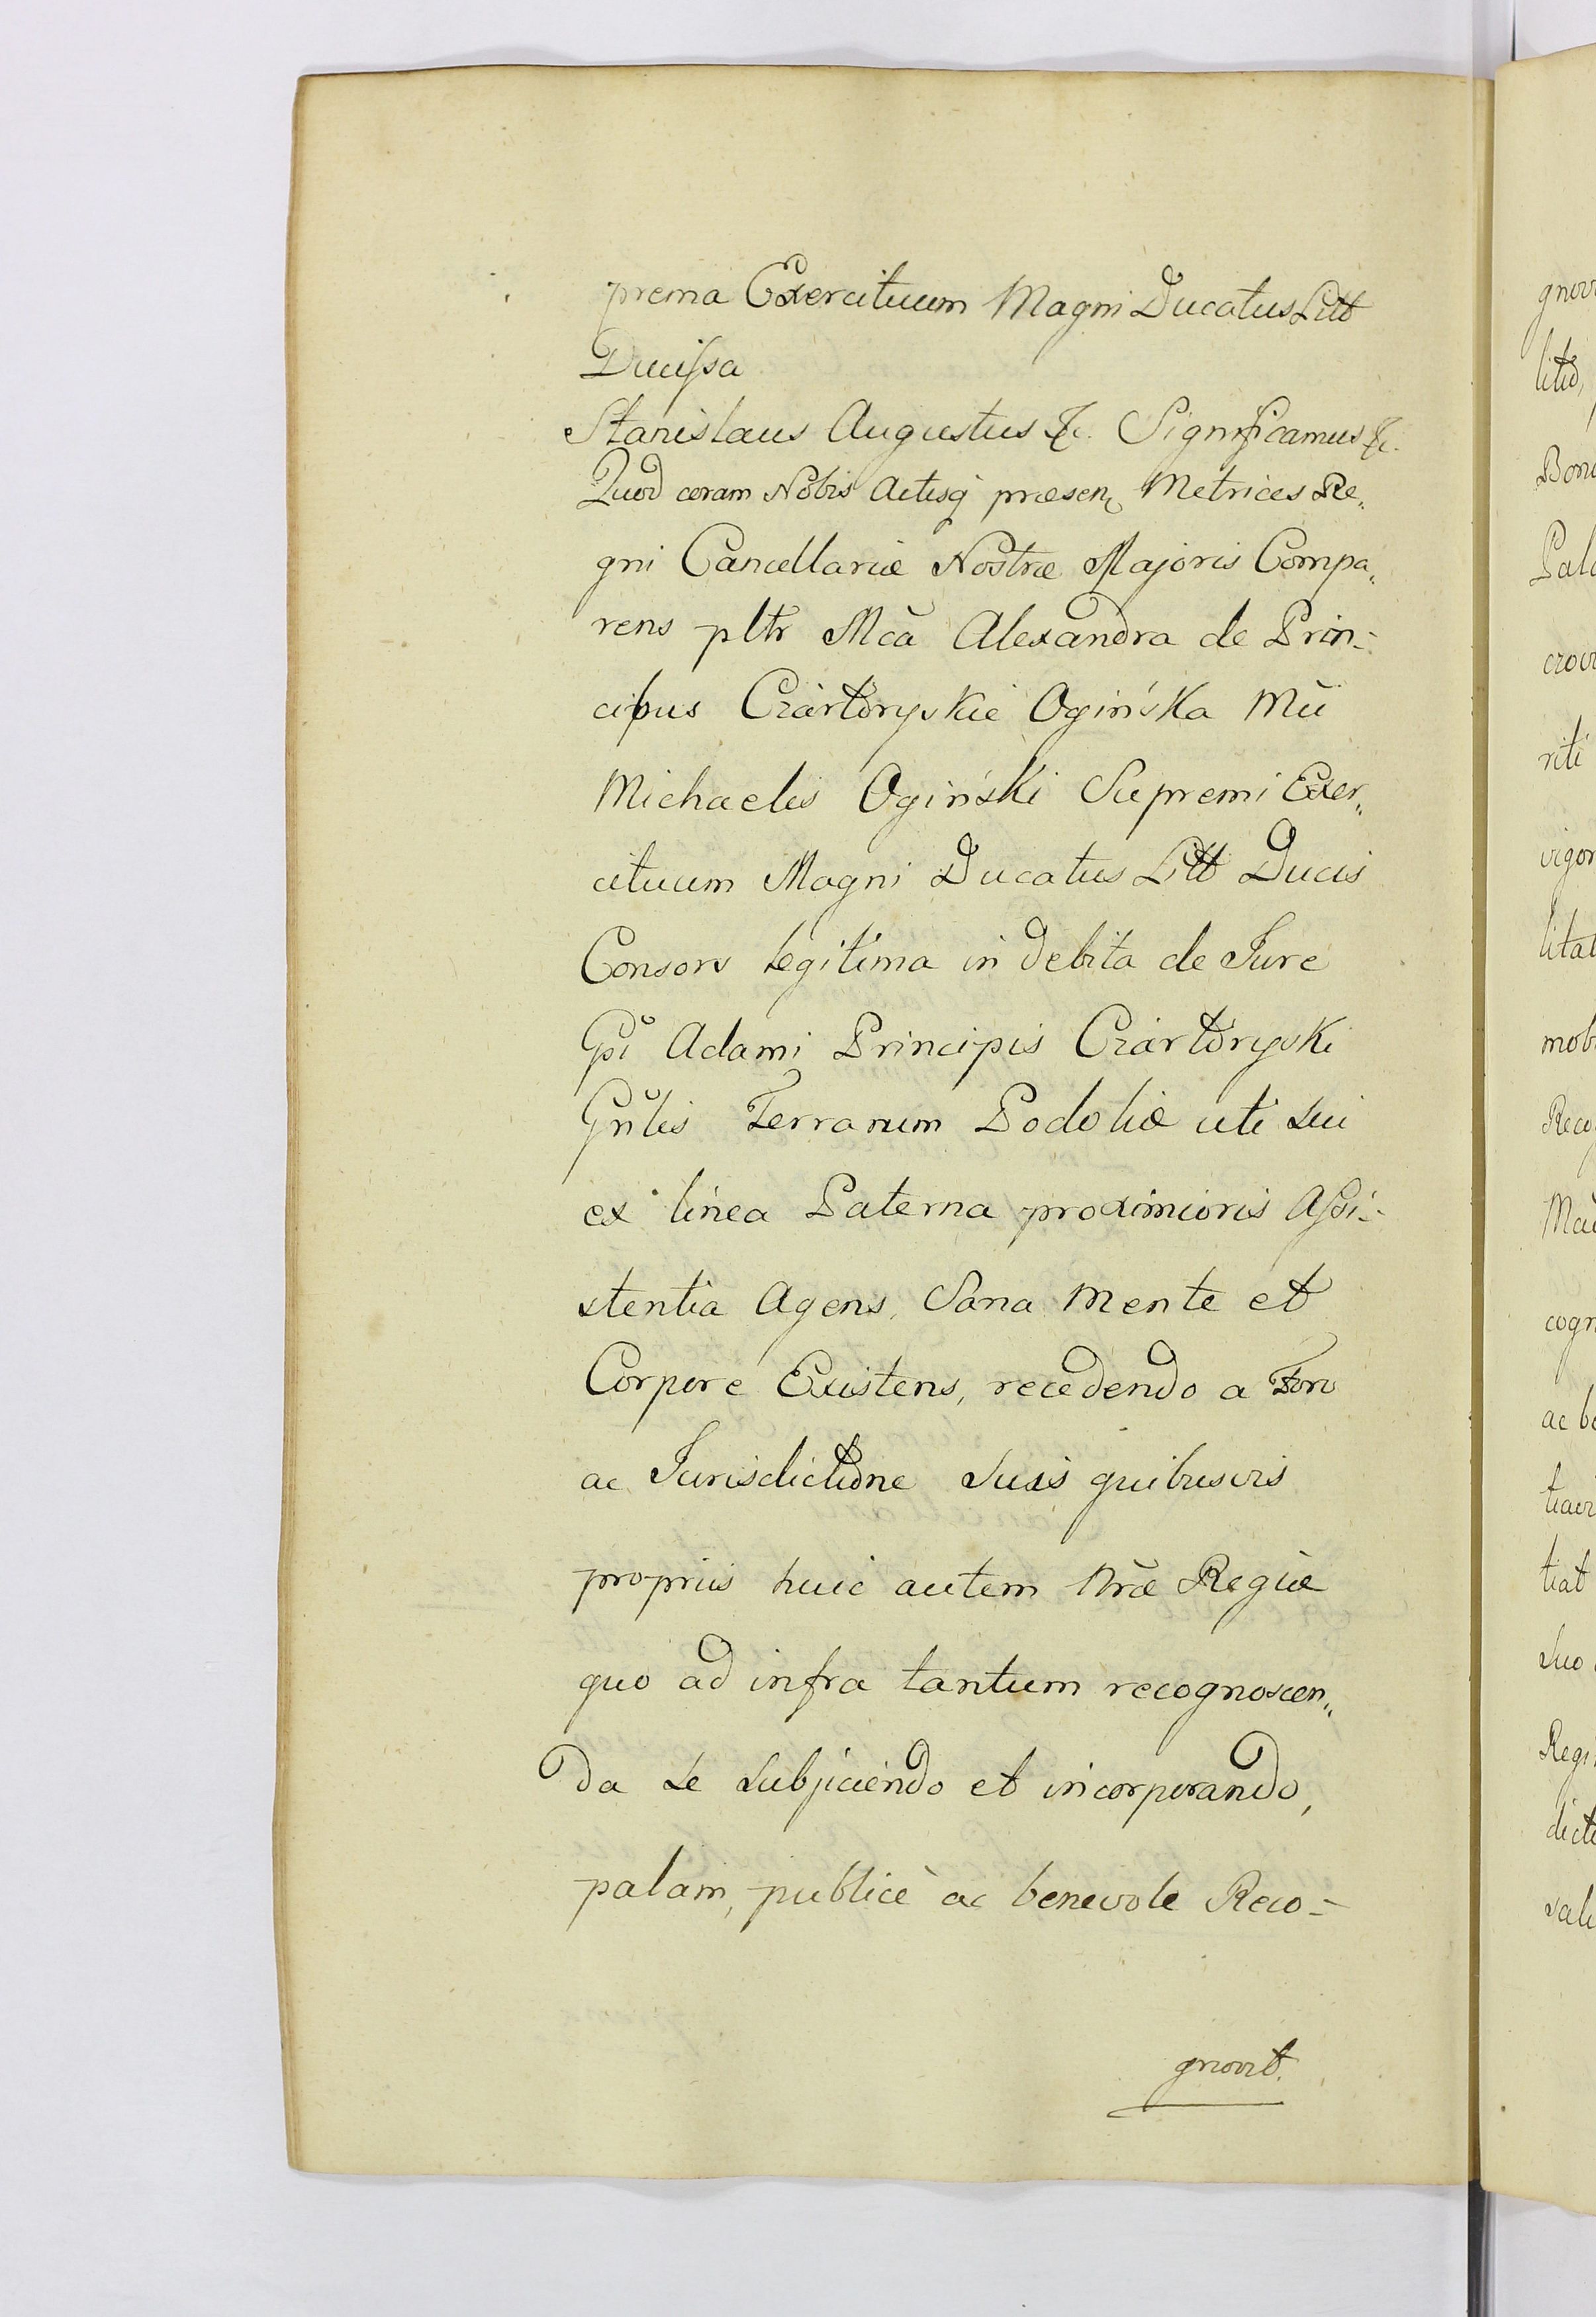 prema Exercituum Magni Ducatus Litt
Ducissa
Stanislaus Augustus &c. Significamus &c.
Quod coram Nobis Actisq̃ præsen Metrices Re„
gni Cancellariæ Nostræ Majoris Compa„
rens pltr Mcã Alexandra de Prin-
cipus Czartoryskie Ogińska Mũi
Michaelis Ogiński Supremi Exer„
cituum Magni Ducatus Litt Ducis
Consors Legitima in debita de Jure
Gsĩ Adami Principis Czartoryski
Gñlis Terrarum Podoliæ uti sui
ex linea Paterna proximioris Assi-
stentia Agens, Sana Mente et
Corpore Existens, recedendo a Foro
ac Jurisdictione suis quibusvis
propriis huic autem Nræ Regiæ
quo ad infra tantum recognoscen„
da se Subjiciendo et incorporando,
palam, publicè ac benevole Reco-
gnovit.
gnovi
litio,
Bono
Pala
czow
riti
vigor
litat
mob
Reco
Mau
cogn
ac be
tiat
suo
Regi
dicto
sale